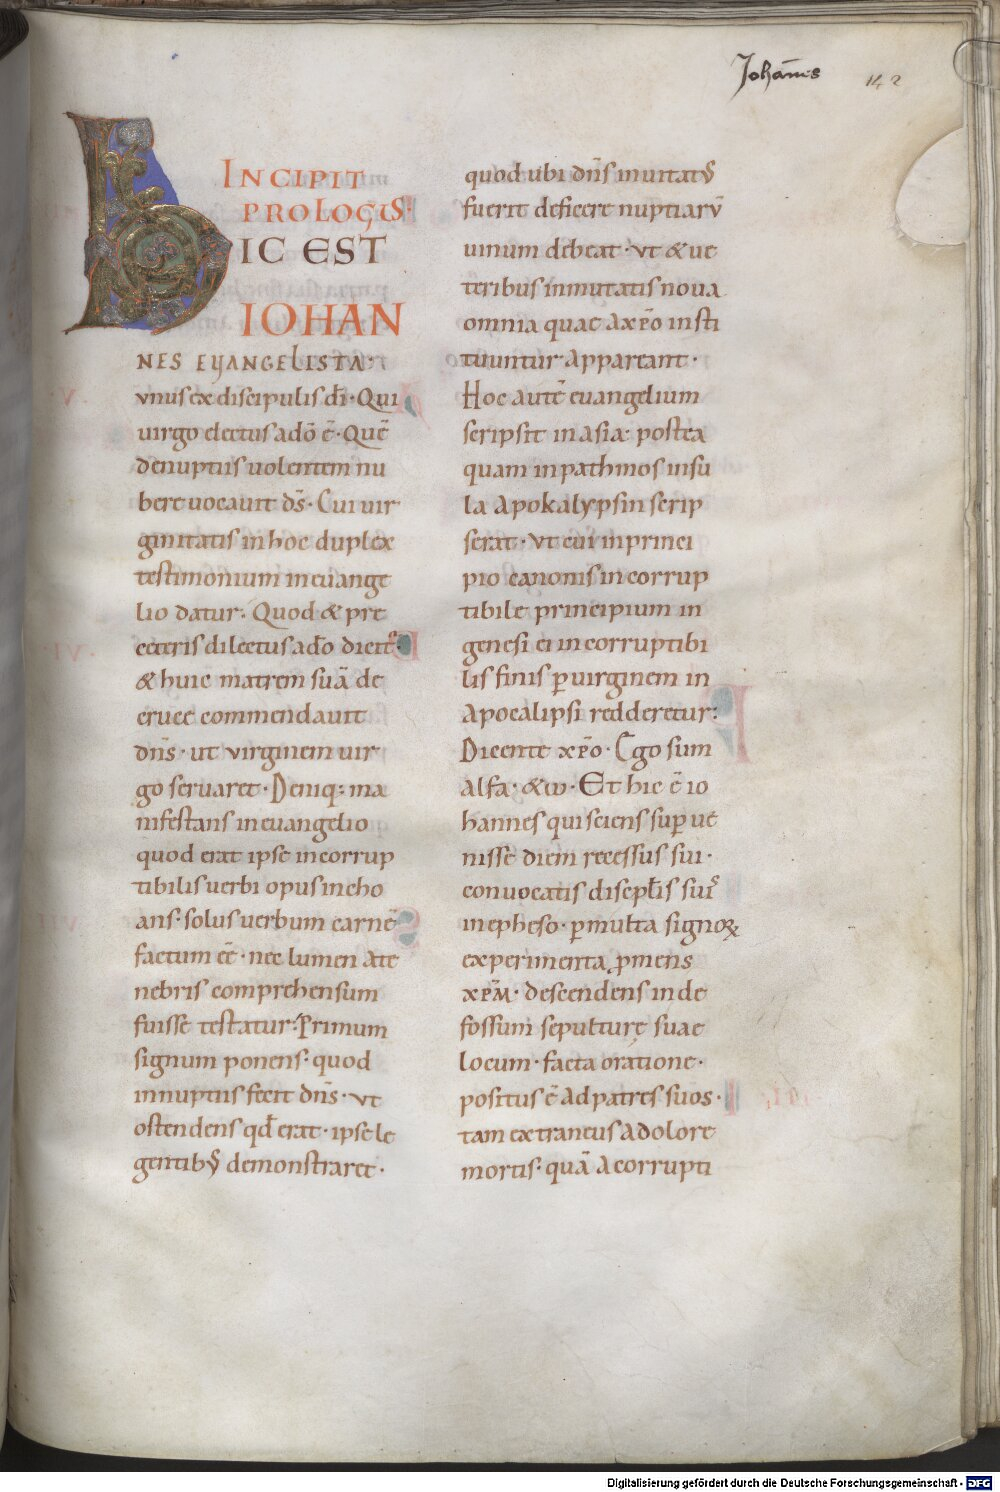 Johān̄es 142
INCIPIT
PROLOGUS·
HIC EST
IOHAN
NES EUANGELISTA·
vnus ex discipulis dī· Qui
uirgo electus a dō ē· Quē
de nuptiis uolentem nu
bere uocauit ds̄· Cui uir
ginitatis in hoc duplex
testimonium in euange
lio datur· Quod & pre
ceteris dilectus a dō dicit᷑·
& huic matrem suā de
cruce commendauit
dn̄s· ut virginem uir
go seruaret· Deniq; ma
nifestans in euangelio
quod erat ipse incorrup
tibilis uerbi opus incho
ans· solus uerbum carnē
factum eē· nec lumen a te
nebris comprehensum
fuisse testatur· Primum
signum ponens· quod
in nuptiis fecit dn̄s· vt
ostendens qd̄ erat· ipse le
gentibꝰ demonstraret·
quod ubi dn̄s inuitatꝰ
fuerit deficere nuptiarū
uinum debeat· vt & ue
teribus inmutatis noua
omnia quae a xp̄o insti
tuuntur appareant·
Hoc autē euangelium
scripsit in asia· postea
quam in pathmos insu
la apokalypsin scrip
serat· vt cui in princi
pio canonis incorrup
tibile principium in
genesi ei incorruptibi
lis finis ꝑ uirginem in
apocalipsi redderetur·
Dicente xp̄o· Ego sum
alfa· & ω· Et hic ē io
hannes qui sciens suꝑue
nisse diem recessus sui·
conuocatis discipl̄is suis
in epheso· ꝑ multa signoꝝ
experimenta ꝓmens
xp̄m· descendens in de
fossum sepulturę suae
locum· facta oratione·
positus ē ad patres suos·
tam extraneus a dolore
mortis· quā a corrupti
Digitalisierung gefördert durch die Deutsche Forschungsgemeinschaft - DFG